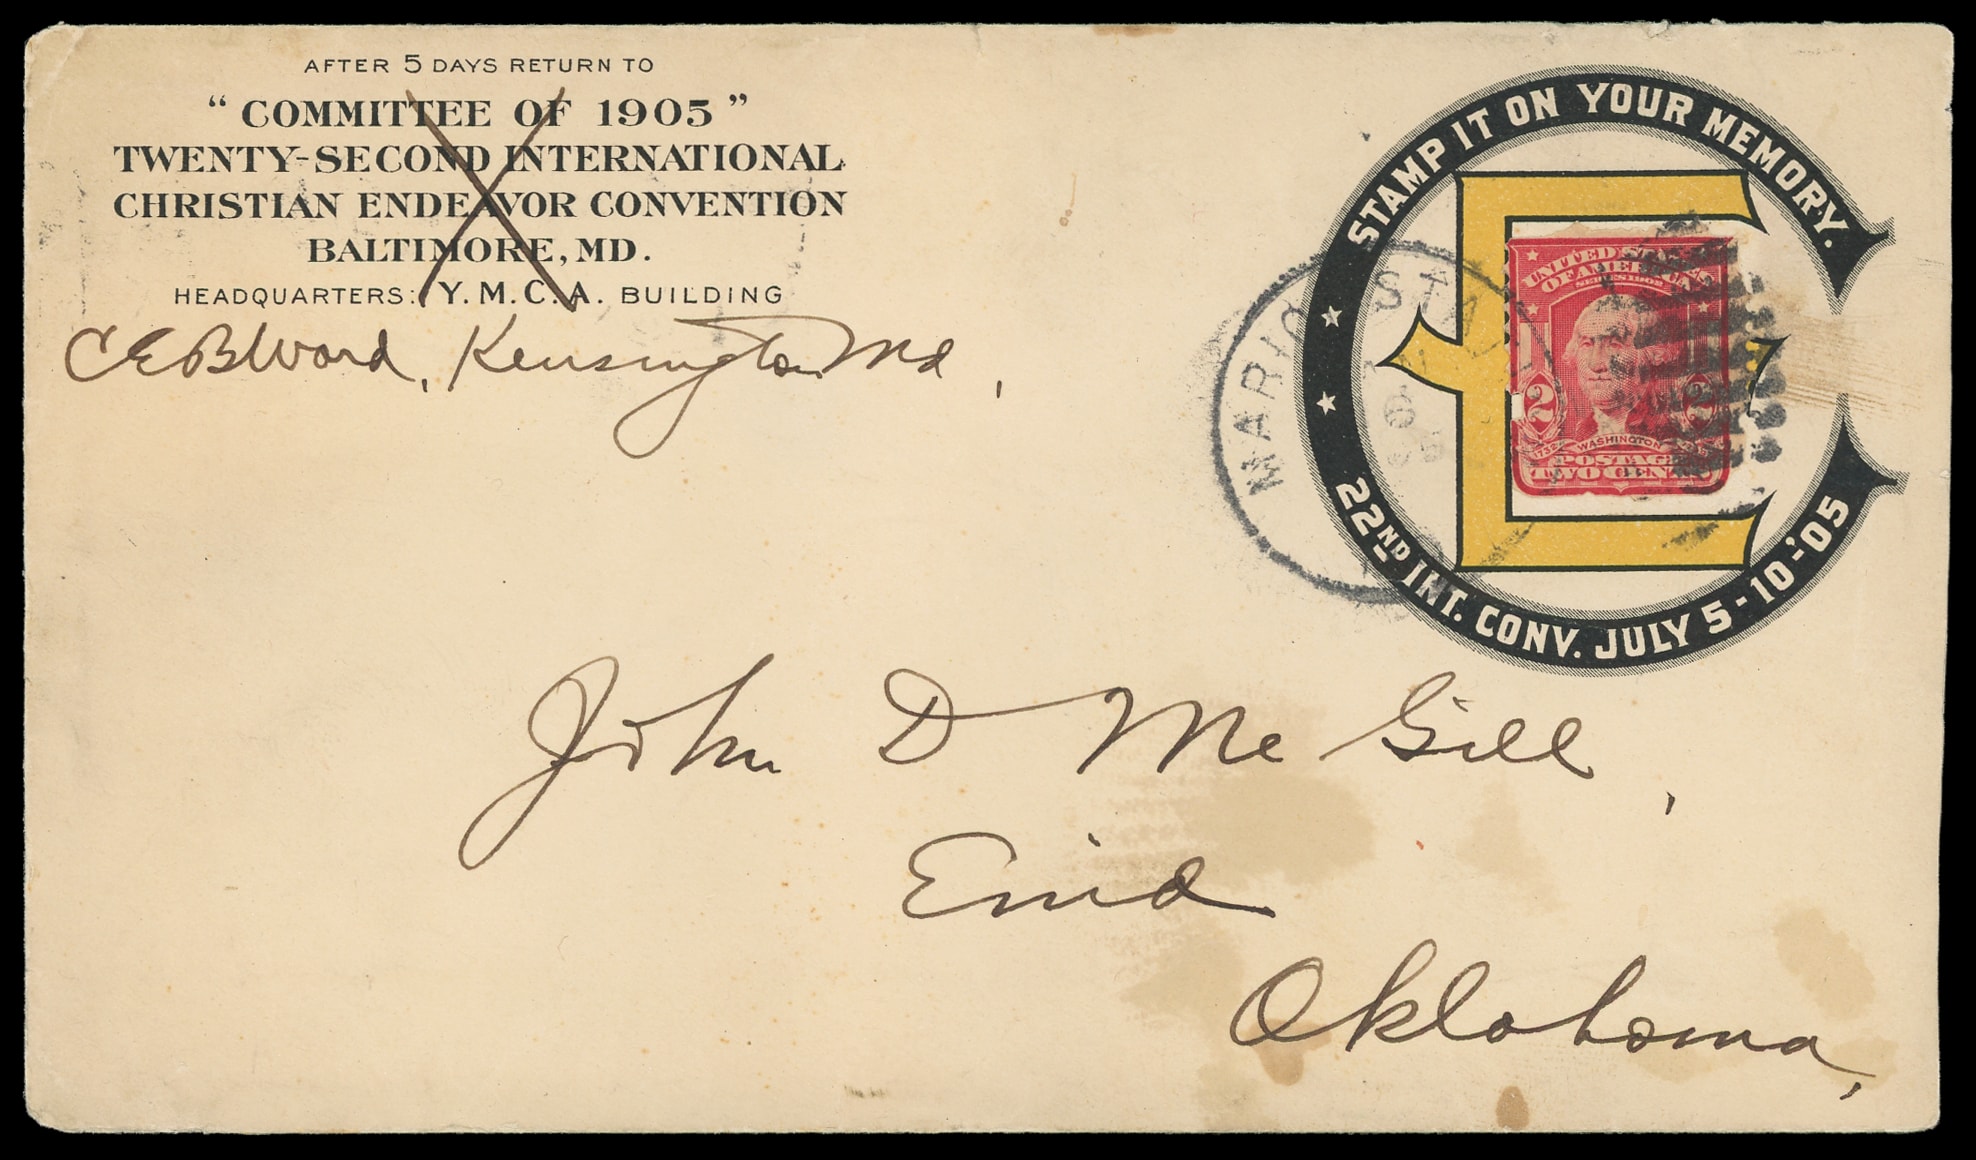 AFTER 5 DAYS RETURN TO
"COMMITTEE OF 1905"
TWENTY-SECOND INTERNATIONAL
CHRISTIAN ENDEAVOR CONVENTION
BALTIMORE, MD.
HEADQUARTERS: Y.M.C.A. BUILDING
C E B Ward, Kensington Md,
STAMP IT ON YOUR MEMORY.
CE
UNITED
OF AMERICA
SERIES 1902
1732 WASHINGTON
2 2
POSTAGE
TWO CENTS
22ND INT. CONV. JULY 5-10-'05
MARION STA
John D McGill,
Enid
Oklahoma,